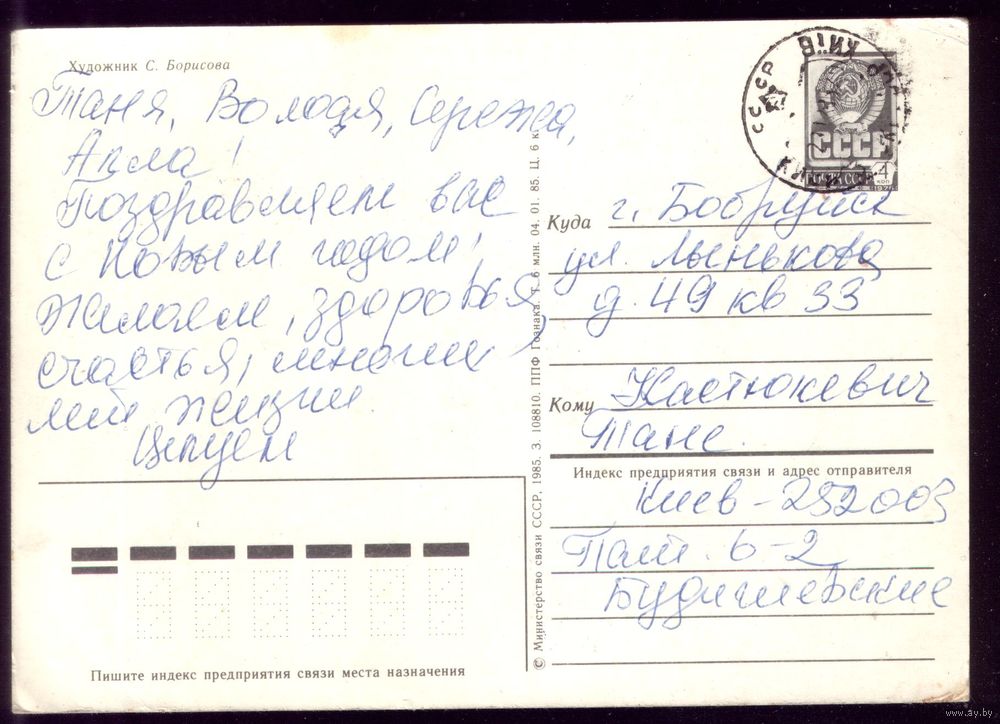 Художник С. Борисова
Таня, Володя, Сережа,
Алла!
Поздравляем вас
с Новым годом!
Желаем, здоровья,
счастья, многии
лет жизни.
Целуем
Пишите индекс предприятия связи места назначения
© Министерство связи СССР, 1985. З. 108810. ППФ Гознака. Т. 6 млн. 04. 01. 85. Ц. 6 к.
СССР
ПОЧТА СССР
4
коп
1976
СССР
Куда г. Бобруйск
ул. Лынькова
д. 49 кв 33
Кому Кастюкевич
Тане.
Индекс предприятия связи и адрес отправителя
Киев-252003
6-2
Будишевские
www.ay.by